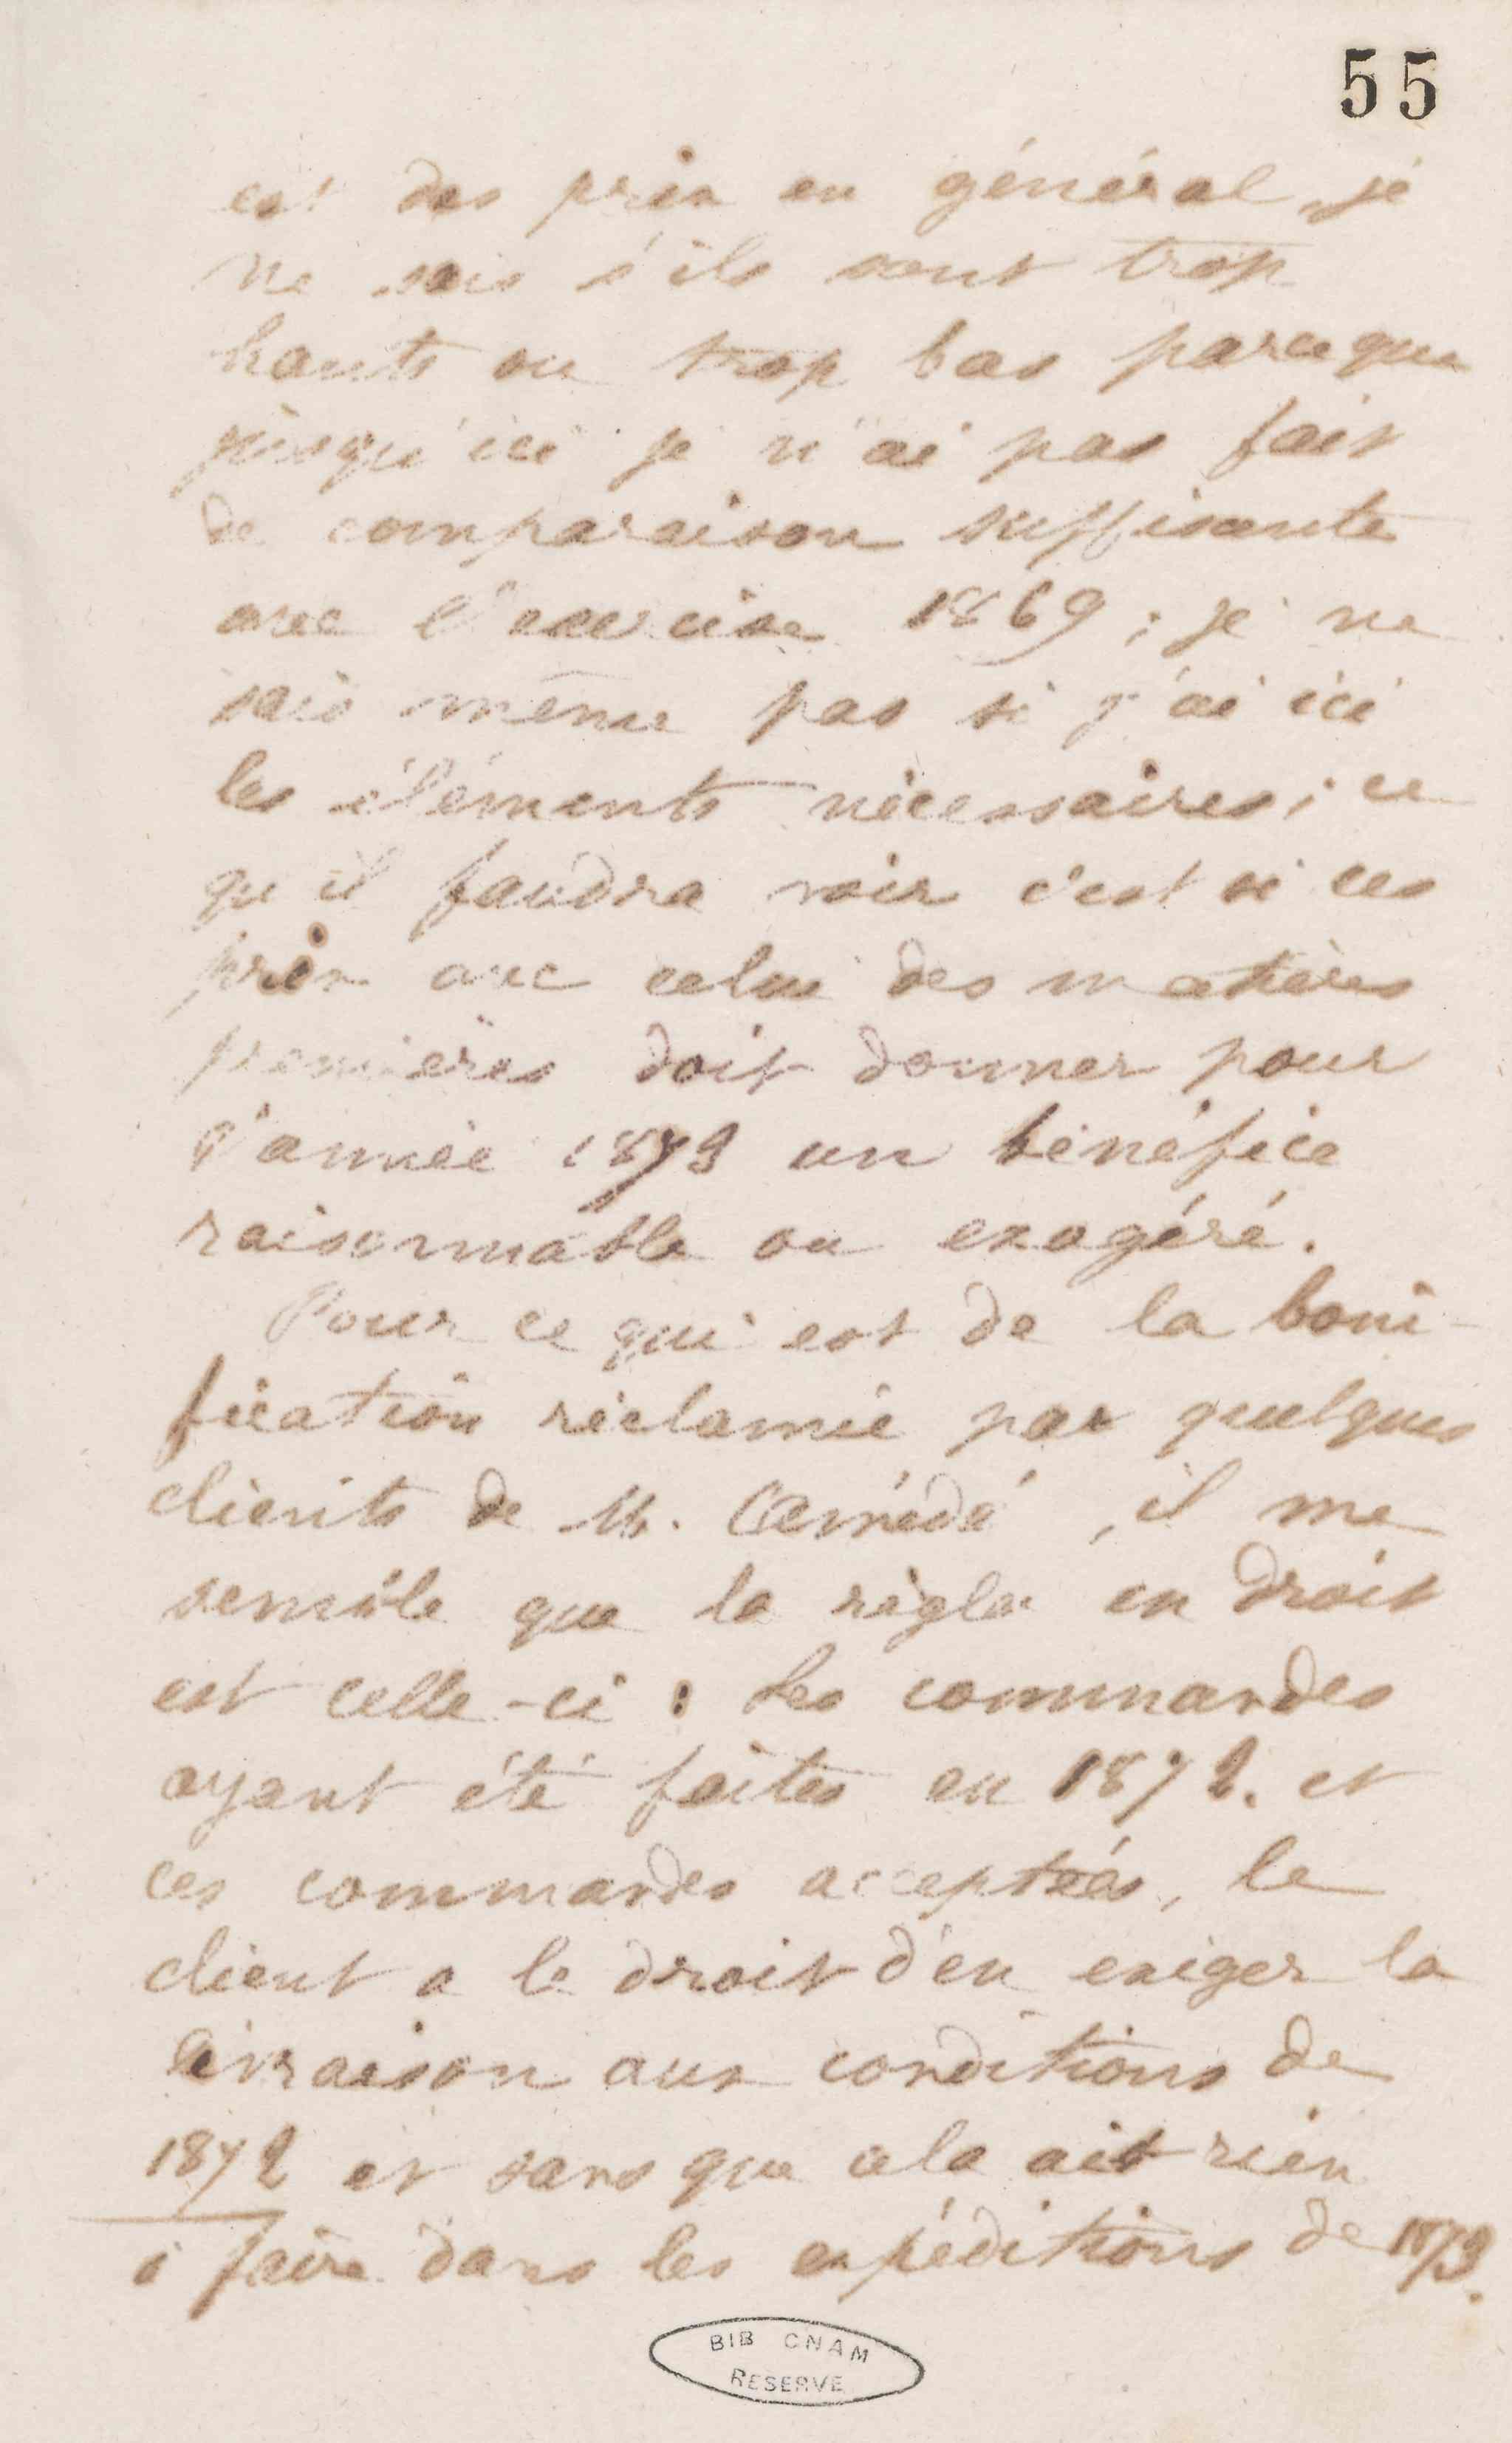 55
est des prix en général, je
ne sais s'ils sont trop
hauts ou trop bas parceque
jusqu'ici je n'ai pas fait
de comparaison suffisante
avec l'exercice 1869 ; je ne
sais même pas si j'ai ici
les éléments nécessaires ; ce
qu'il faudra voir c'est si ces
prix avec celui des matières
premières doit donner pour
l'année 1873 un bénéfice
raisonnable ou exagéré.
Pour ce qui est de la boni-
fication réclamée par quelques
clients de M. , il me
semble que la règle en droit
est celle-ci : Les commandes
ayant été faites en 1872. et
ces commandes acceptées, le
client a le droit d'en exiger la
livraison aux conditions de
1872 et sans que cela ait rien
à faire dans les expéditions de 1873.
BIB CNAM
RESERVE